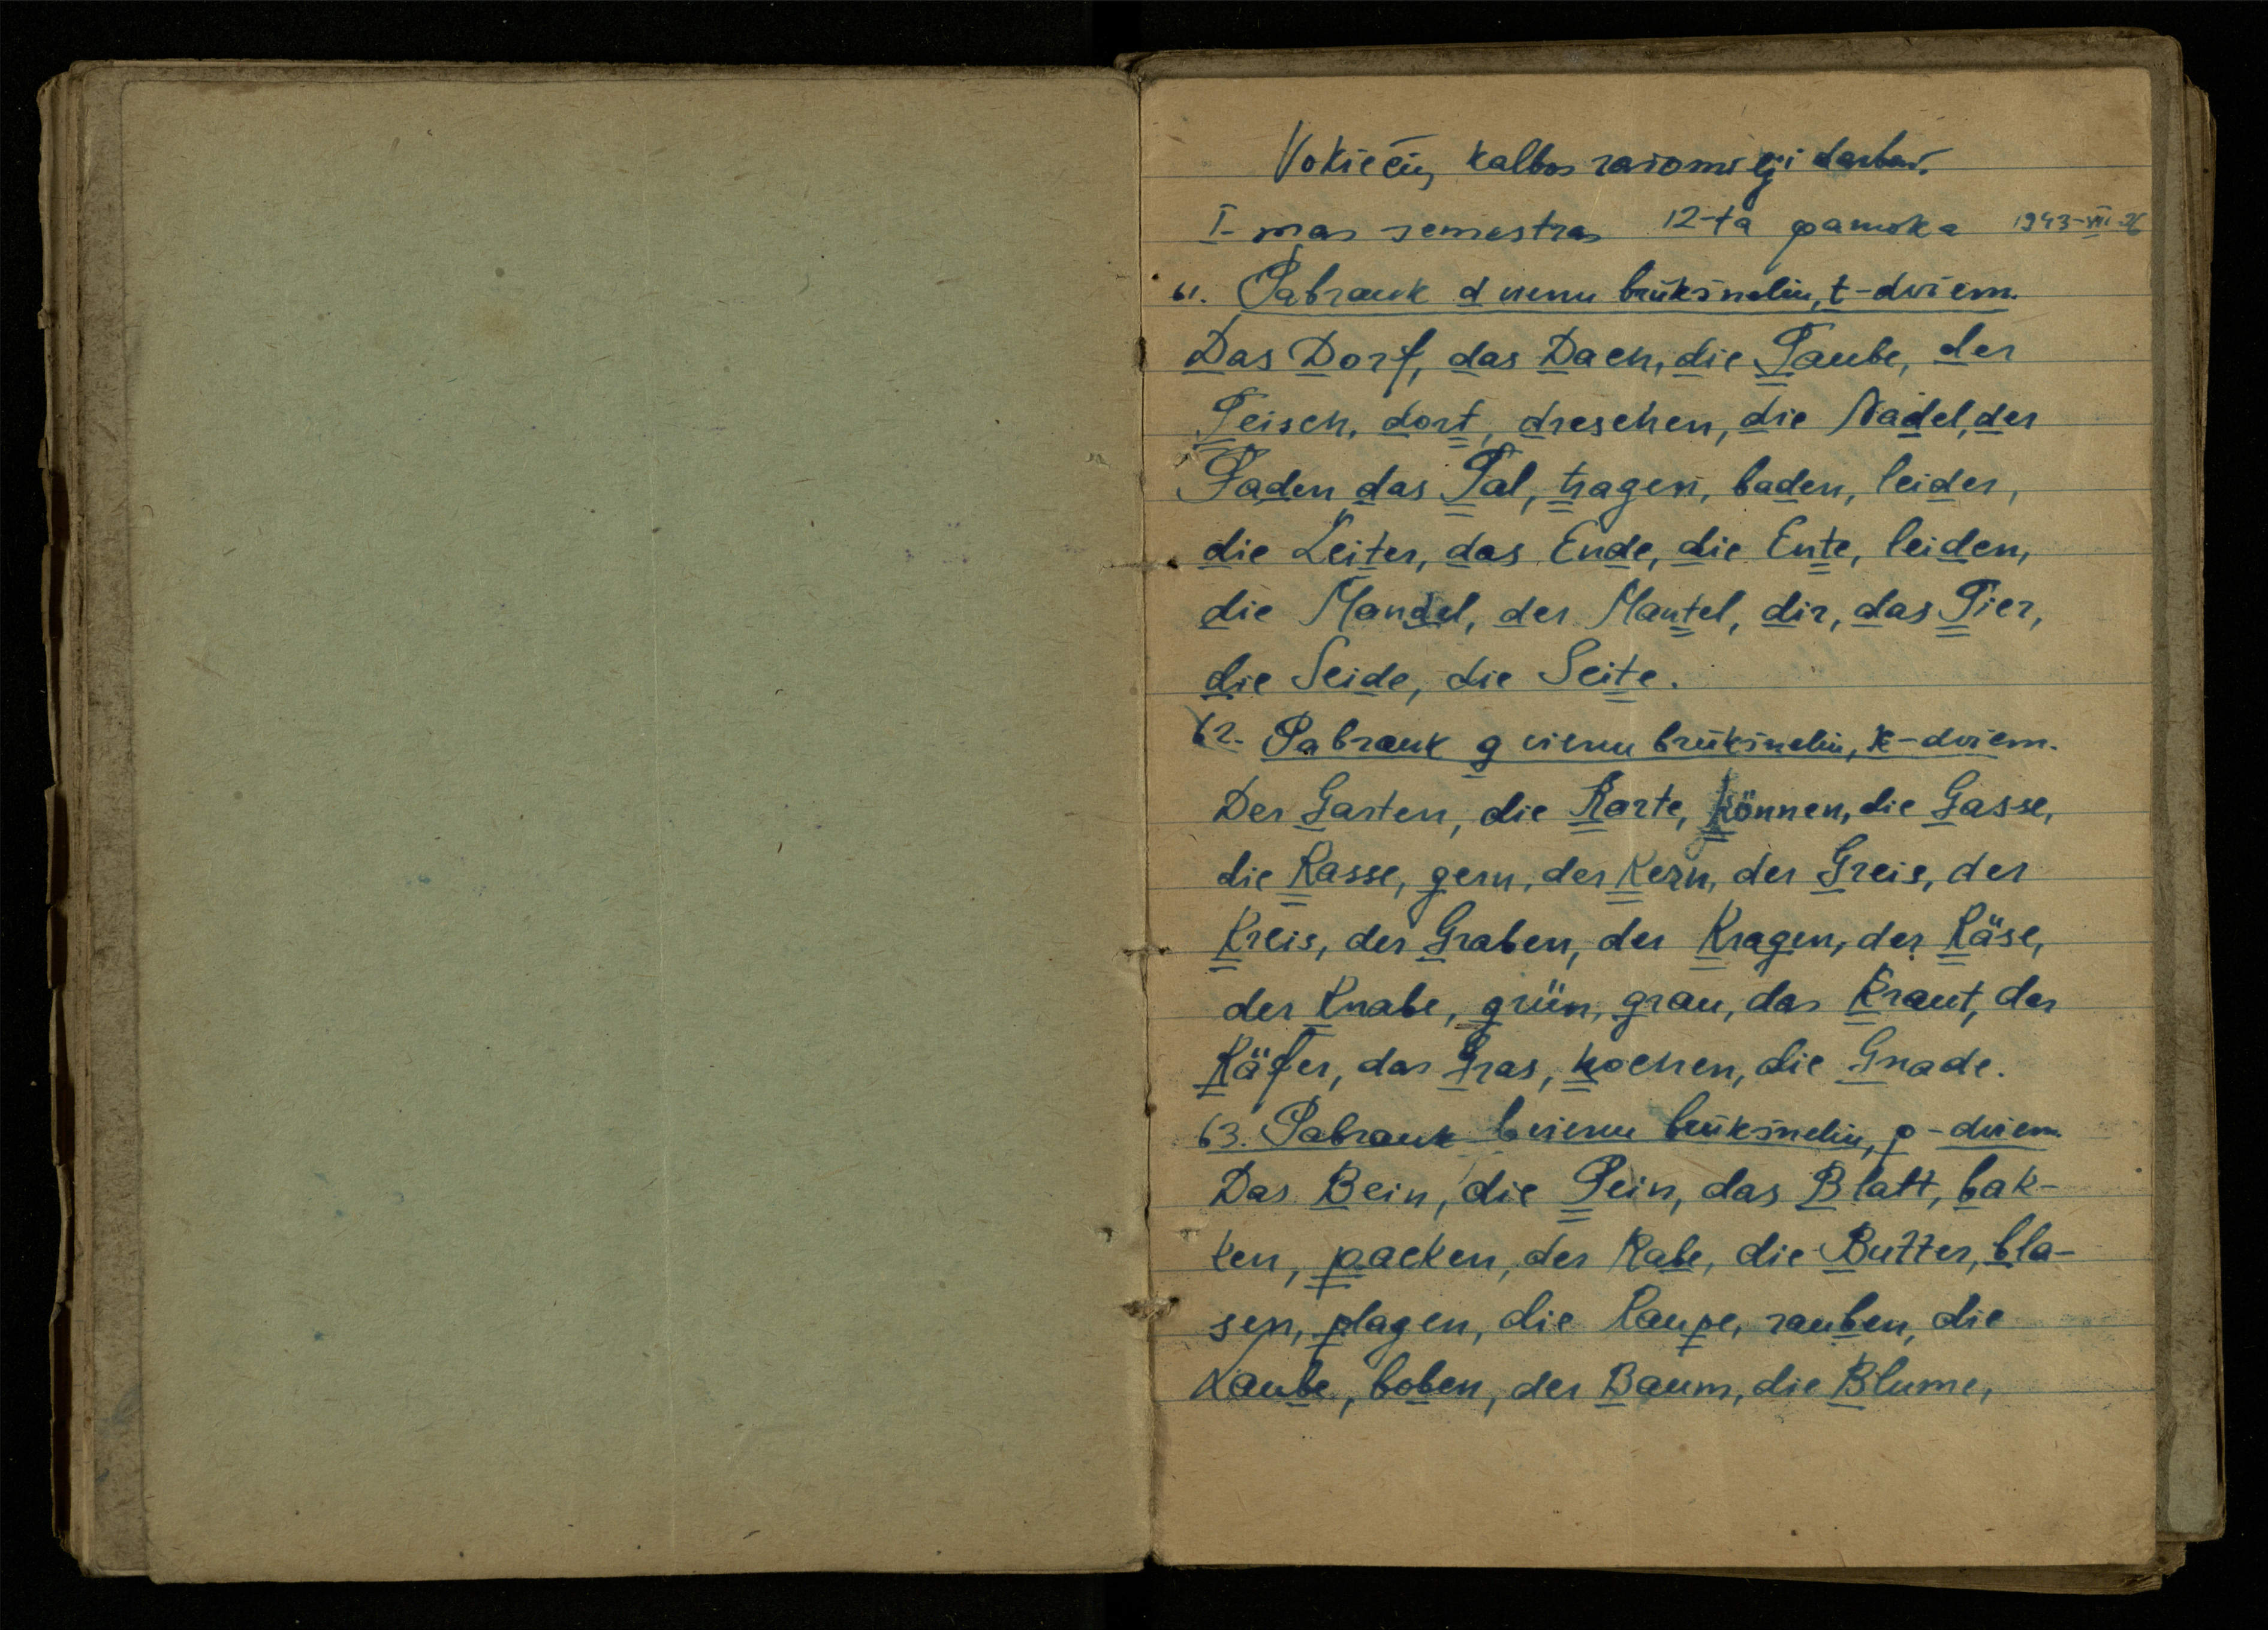 Vokiečių kalbos rašomieji darbai.
I-mas semestras 12-ta pamoka 1943-VII-26
61. Pabrauk d vienu brūkšneliu, t-dviem.
Das Dorf, das Dach, die Taube, der
Teisch, dort, dreschen, die Nadel, der
Faden das Tal, tragen, baden, leider,
die Leiter, das Ende, die Ente, leiden,
die Mandel, der Mantel, dir, das Tier,
die Seide, die Seite.
62. Pabrauk g vienu brūkšneliu, k-dviem.
Der Garten, die Karte, können, die Gasse,
die Kasse, gern, der Kern, der Greis, der
Kreis, der Graben, der Kragen, der Käse,
der Knabe, grün, grau, das Kraut, der
Käfer, das Gras, kochen, die Gnade.
63. Pabrauk b vienu brūkšneliu, p-dviem
Das Bein, die Pein, das Blatt, bak-
ken, packen, der Rabe, die Butter, bla-
sen, plagen, die Raupe, rauben, die
Laube, loben, der Baum, die Blume,